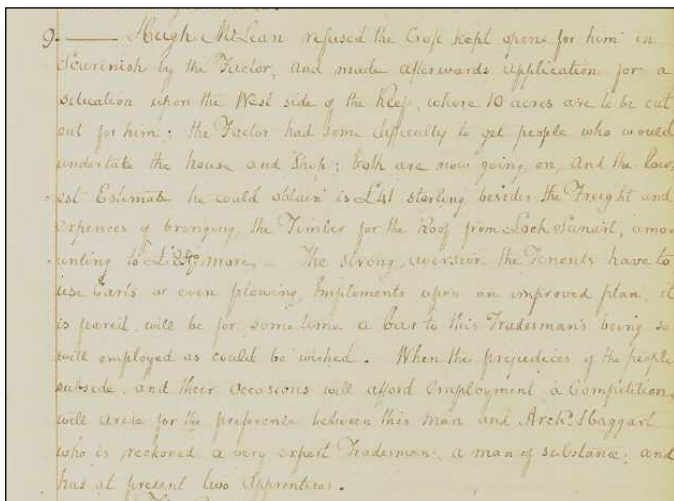 9 —— Hugh McLean refused the Croft kept opene for him in
Scarenish by the Factor, and made afterwards application for a
situation upon the West side of the Reef, where 10 acres are to be cut
out for him; the Factor had some difficulty to get people who would
undertate the house and Shop; both are now going on, and the low-
est Estimate he could obtain is £41 sterling besides the Freight and
expences of bringing the Timber for the Roof from Loch Sunart, amo
unting to more, – The strong aversion the Tenents have to
use Carts or even plowing Implements upon an improved plan, it
is feared, will be for sometime a bar to this Tradesman's being so
well employed as could be wished. When the prejudices of the people
subside, and their occasions will afford employment a Competition
will arise for the preference between this man and Archd. Haggart
who is reckoned a very expert Tradesman, a man of substance, and
has at present two Apprentices.